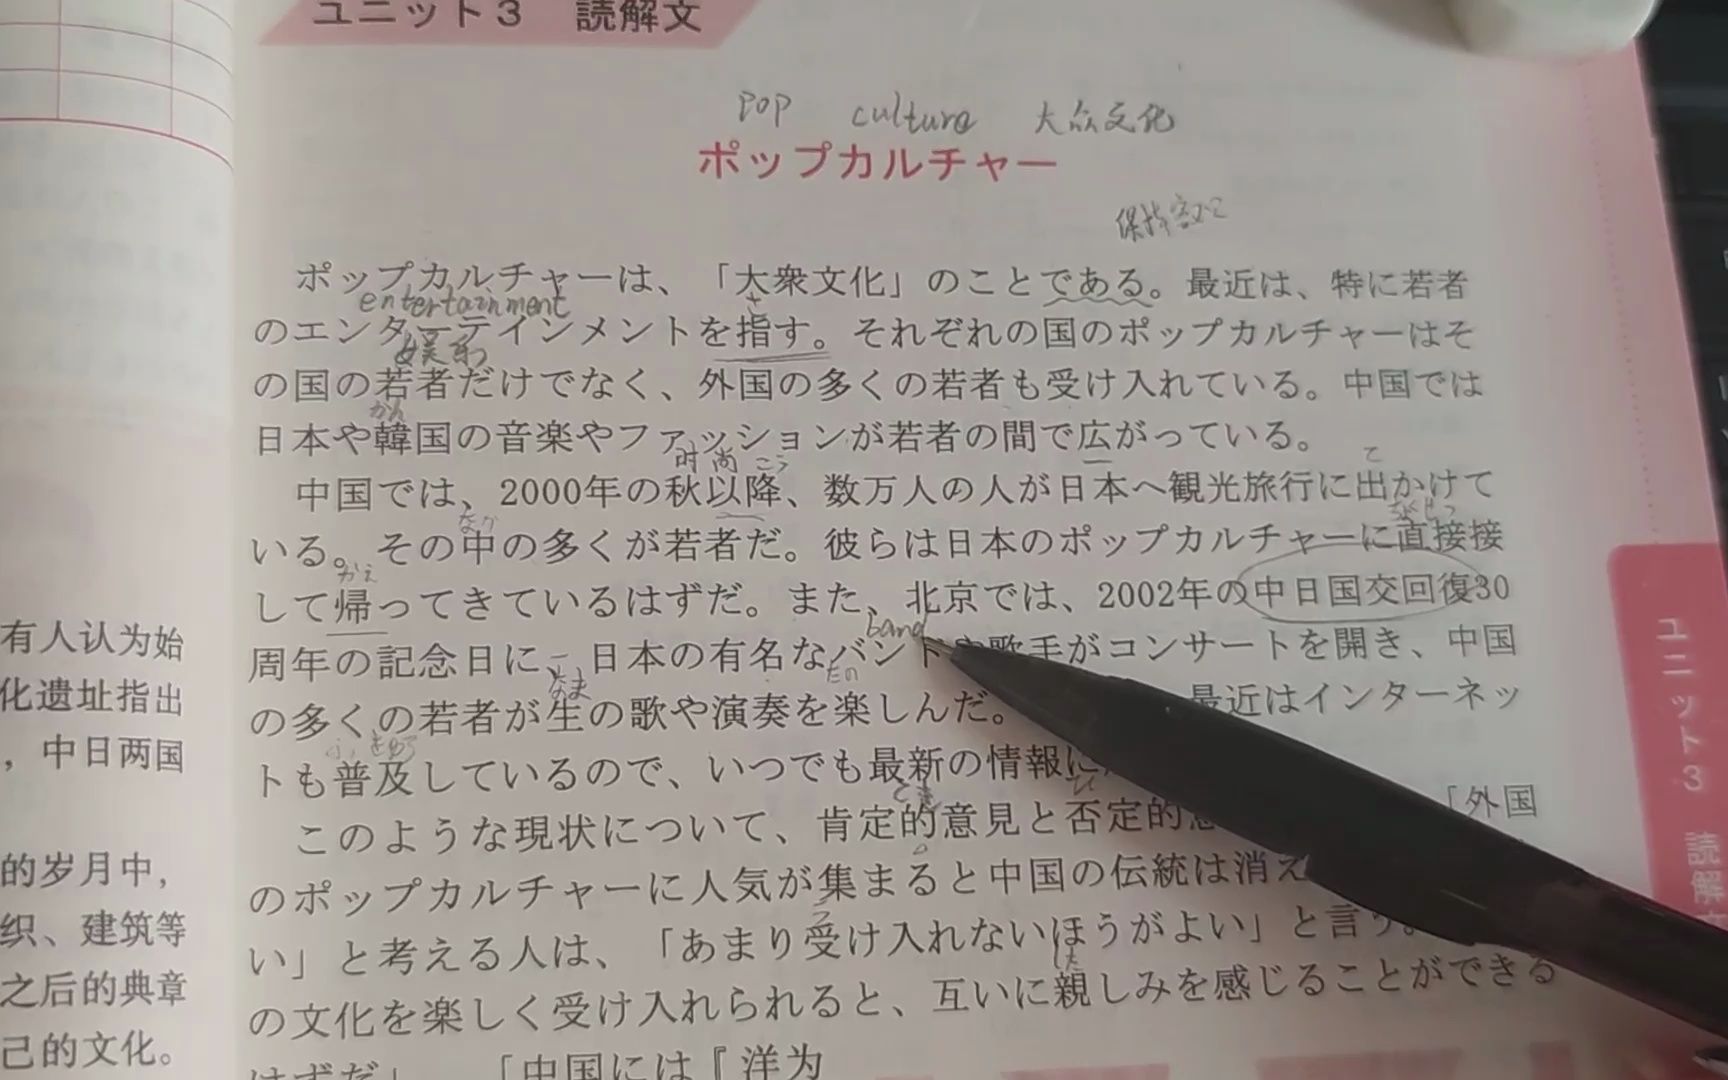 ユニット3 読解文
pop culture 大众文化
ポップカルチャー
ポップカルチャーは、「大衆文化」のことである。最近は、特に若者
entertainment
さ
のエンターテインメントを指す。それぞれの国のポップカルチャーはそ
娱乐
の国の若者だけでなく、外国の多くの若者も受け入れている。中国では
かん
日本や韓国の音楽やファッションが若者の間で広がっている。
时尚 こう
て
中国では、2000年の秋以降、数万人の人が日本へ観光旅行に出かけて
なか
いる。その中の多くが若者だ。彼らは日本のポップカルチャーに直接接
かえ
して帰ってきているはずだ。また、北京では、2002年の中日国交回復30
band
周年の記念日に、日本の有名なバンド 歌手がコンサートを開き、中国
なま
たの
の多くの若者が生の歌や演奏を楽しんだ。 最近はインターネッ
トも普及しているので、いつでも最新の情報に
てき
このような現状について、肯定的意見と否定的意 「外国
のポップカルチャーに人気が集まると中国の伝統は消え
い」と考える人は、「あまり受け入れないほうがよい」と言う。
した
の文化を楽しく受け入れられると、互いに親しみを感じることができる
はずだ」 「中国には『洋为
有人认为始
化遗址指出
，中日两国
的岁月中，
织、建筑等
之后的典章
己的文化。
ユニット3 読解